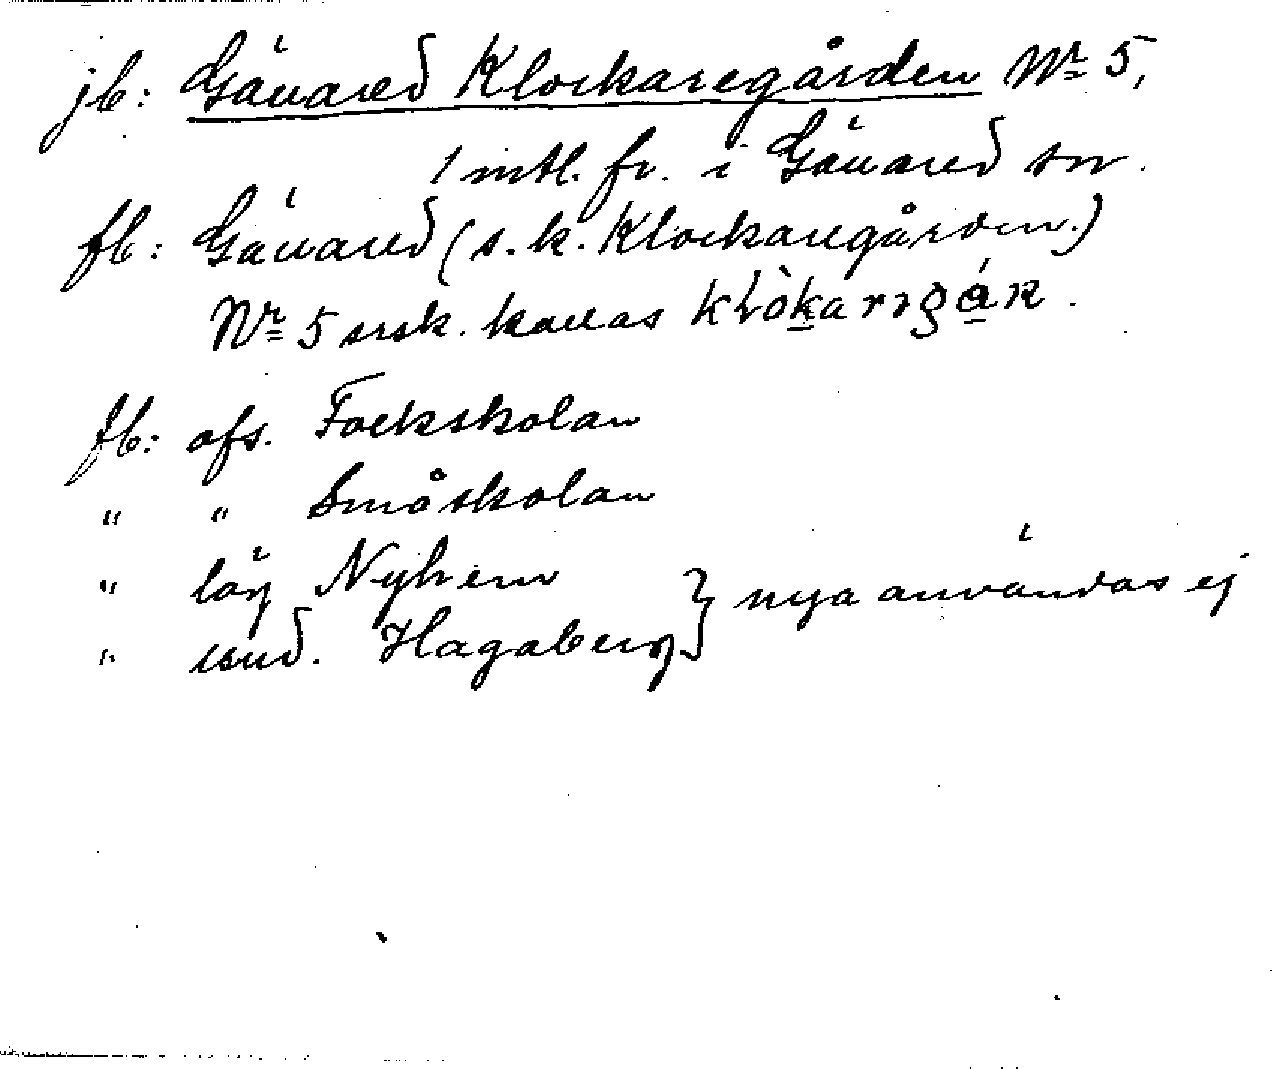 jb: Gävared Klockaregården No 5,
1 mtl. fr. i Gävared sn.
fb: Gävared (s. k. Klockaregården.)
No 5 ursk. kallas
fb: afs. Folkskolan
" " Småskolan
" läg Nyhem } nya användas ej
" und. Hagaberg